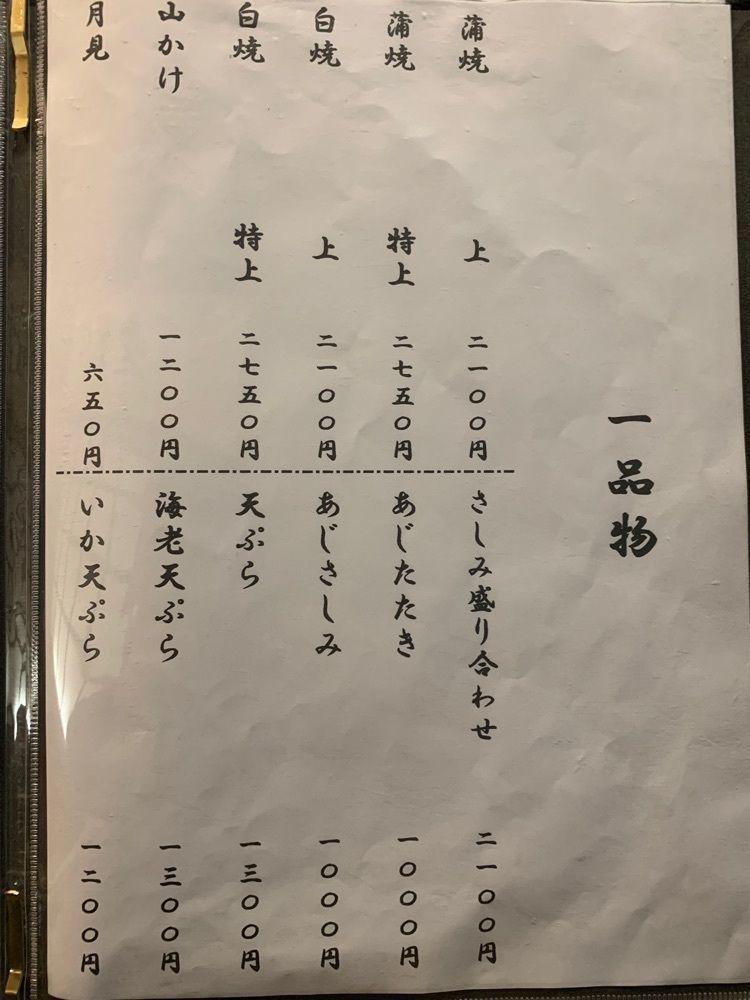 一品物
蒲焼 上 二一〇〇円
蒲焼 特上 二七五〇円
白焼 上 二一〇〇円
白焼 特上 二七五〇円
山かけ 一二〇〇円
月見 六五〇円
さしみ盛り合わせ 二一〇〇円
あじたたき 一〇〇〇円
あじさしみ 一〇〇〇円
天ぷら 一三〇〇円
海老天ぷら 一三〇〇円
いか天ぷら 一二〇〇円